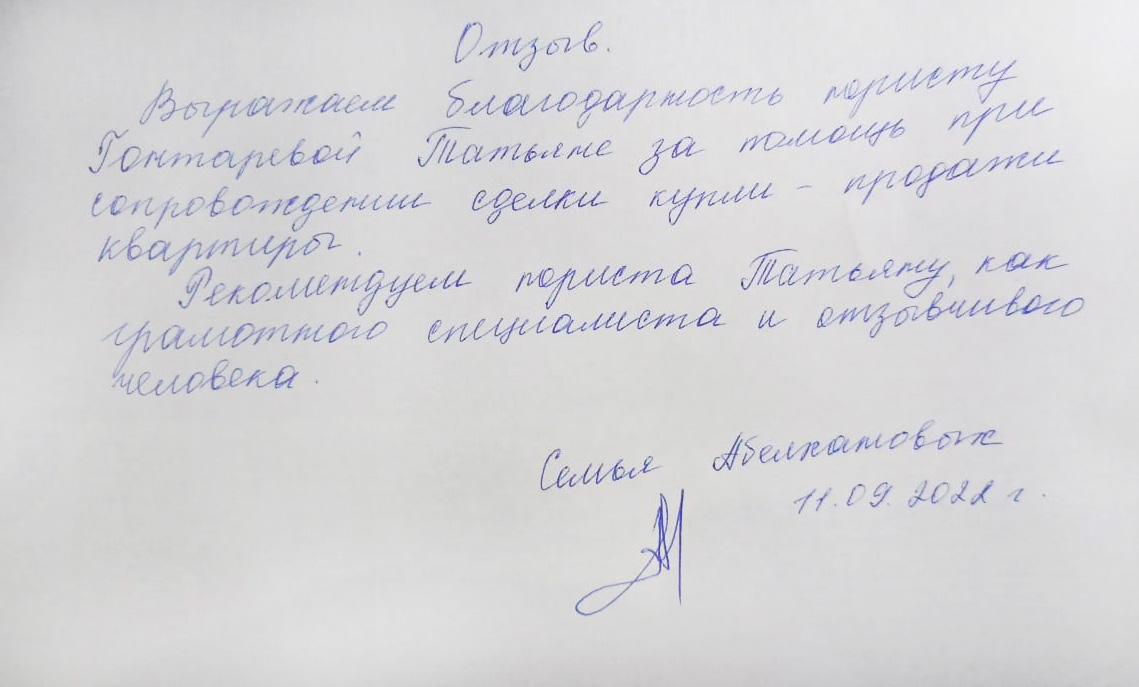 Отзыв.
Выражаем благодарность юристу
Гонтаревой Татьяне за помощь при
сопровождении сделки купли - продажи
квартиры.
Рекомендуем юриста Татьяну, как
грамотного специалиста и отзывчивого
человека.
Семья
11.09.2022 г.